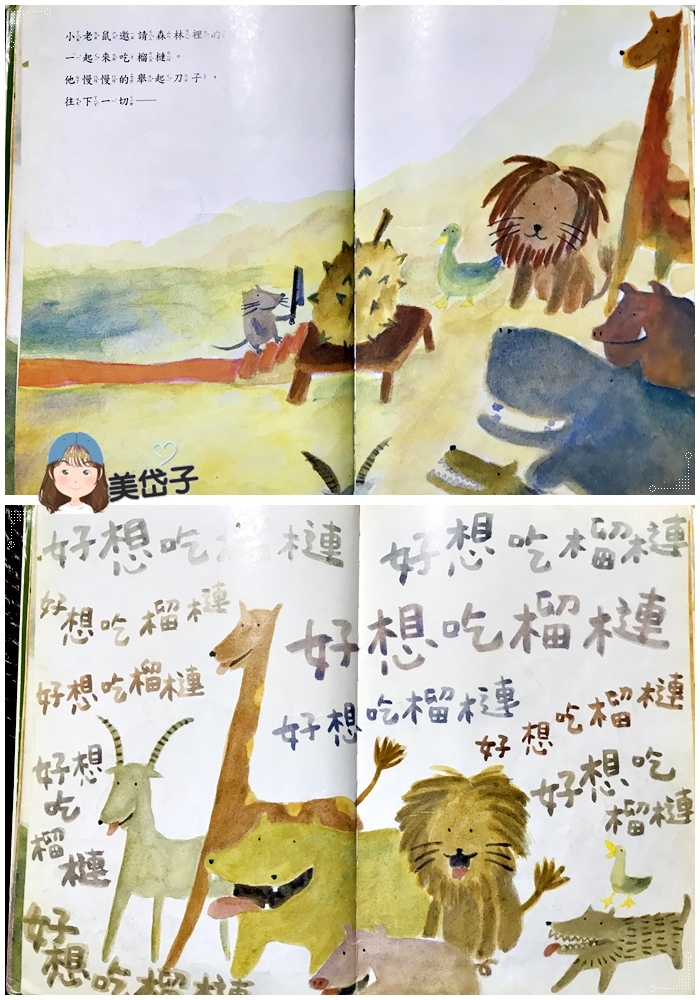 小老鼠邀請森林裡的
一起來吃榴槤。
他慢慢的舉起刀子，
往下一切——
美岱子
好想吃榴槤
好想吃榴槤
好想吃榴槤
好想吃榴槤
好想吃榴槤
好想吃榴槤
好想吃榴槤
好想
吃
榴
槤
好想吃
榴槤
好
想吃榴槤